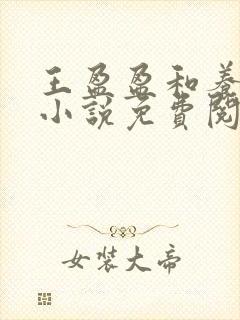 王盈盈和养
小说免費閱
女裝大帝